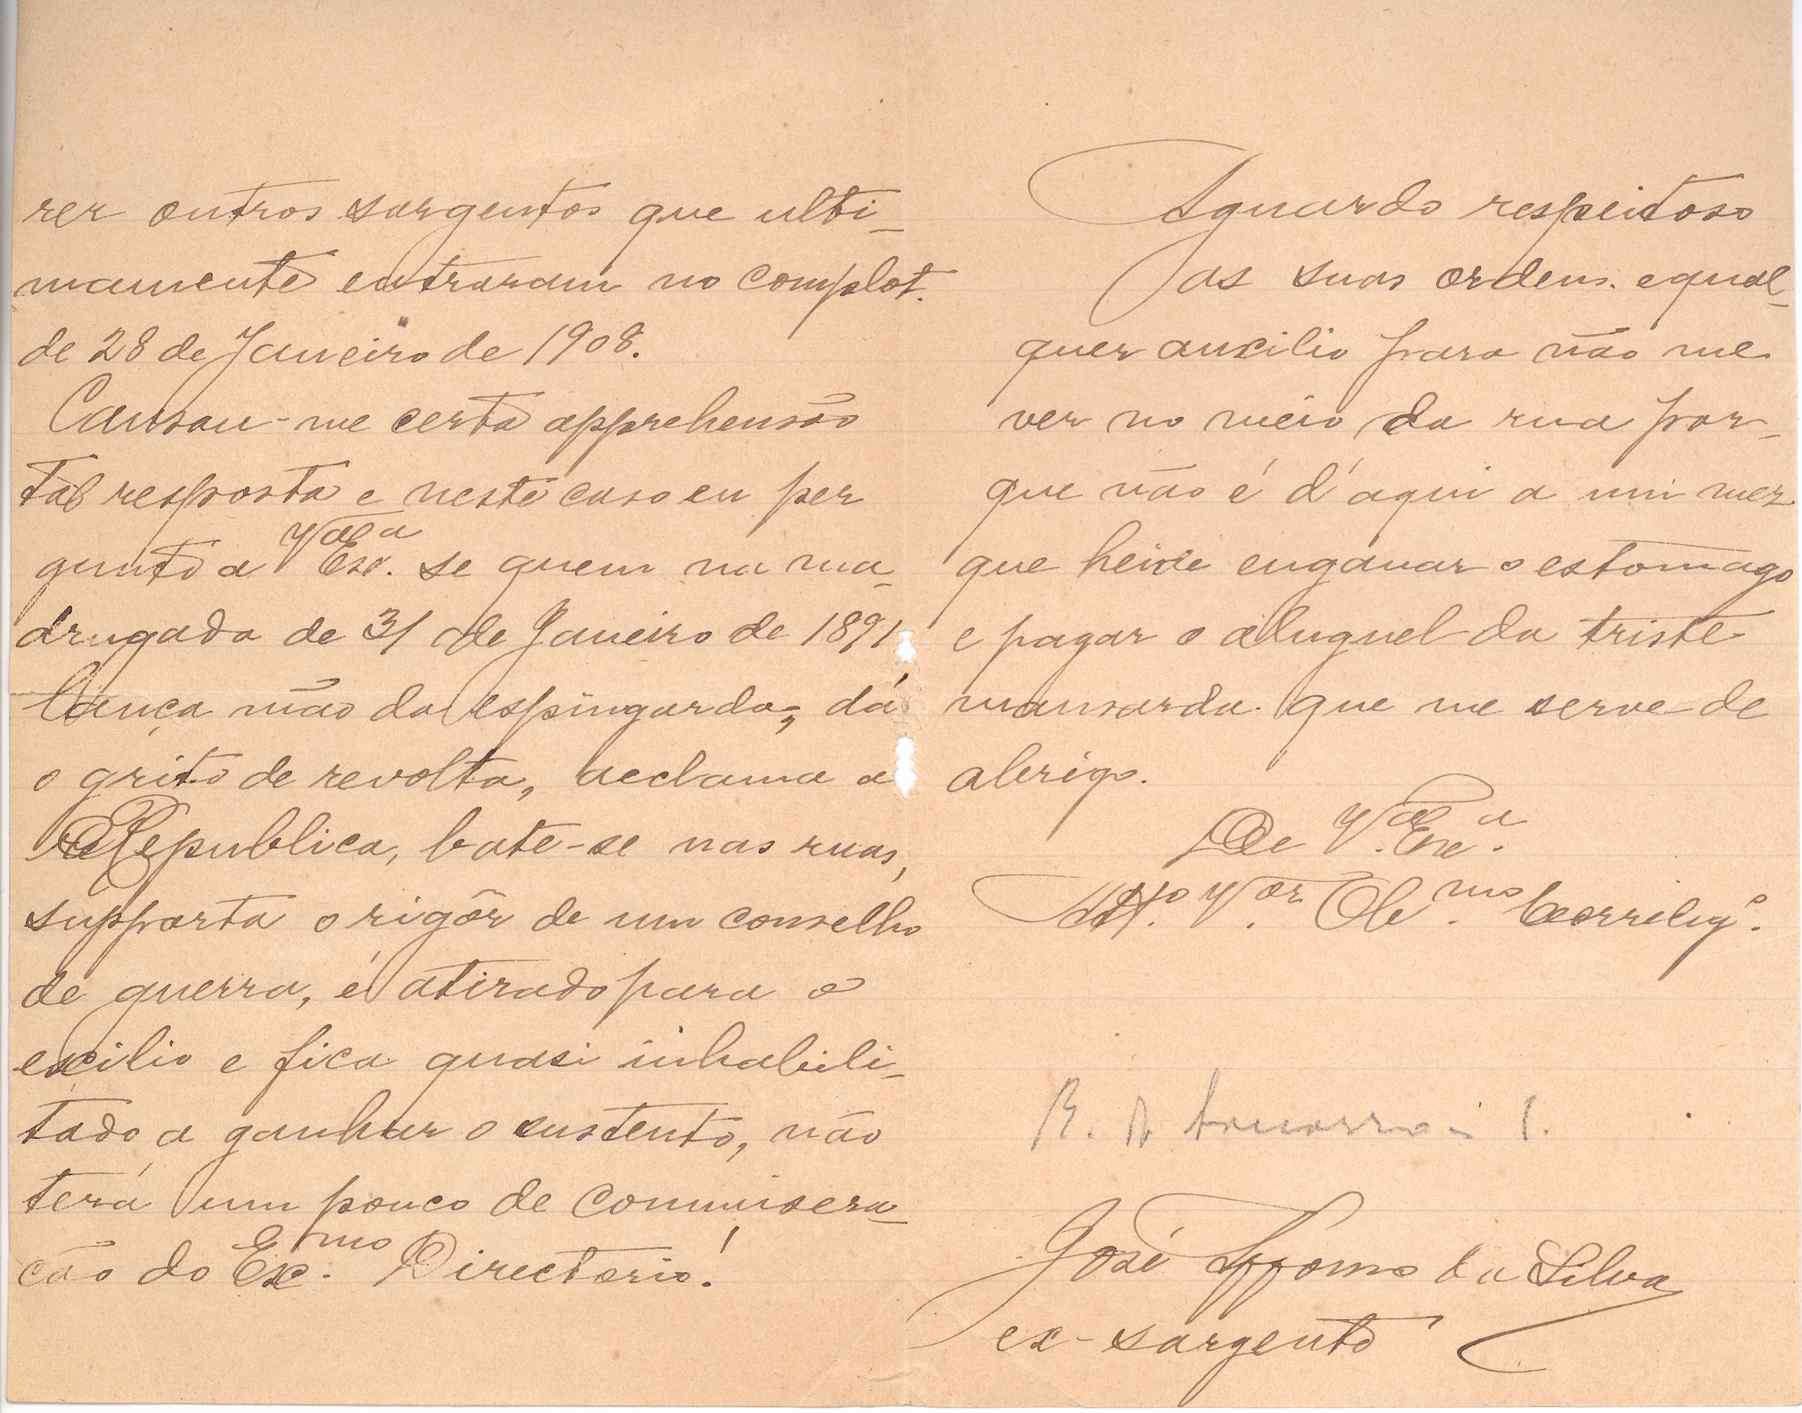 rer outros sargentos que ulti-
mamente entraram no complot.
de 28 de Janeiro de 1908.
Causou-me certa apprehensão
tal resposta e neste caso eu per
gunto a V.ª Ex.ª se quem na ma-
drugada de 31 de Janeiro de 1891
lança mão da espingarda, dá
o grito de revolta, acclama a
Republica, bate-se nas ruas,
supporta o rigôr de um conselho
de guerra, é atirado para o
exilio e fica quasi inhabili-
tado a ganhar o sustento, não
terá um pouco de commisera-
ção do Ex.mo Directorio!
Aguardo respeitoso
as suas ordens e qual-
quer auxilio para não me
ver no meio da rua por-
que não é d'aqui a um mez
que heide enganar o estomago
e pagar o aluguel da triste
mansarda que me serve de
abrigo.
De V.ª Ex.ª
Att.º V.or Ob.mo Correlig.º
R. D.
José Affonso da Silva
ex-sargento